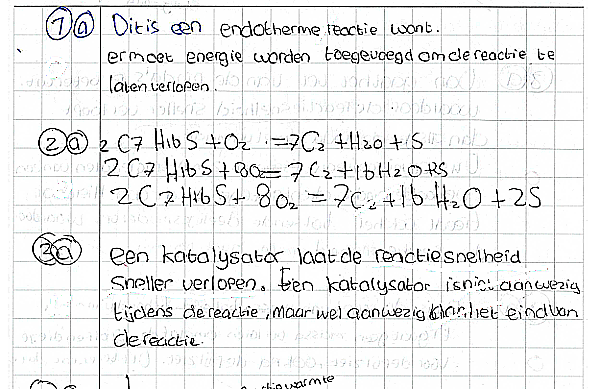 1 a Dit is een endotherme reactie want.
er moet energie worden toegevoegd om de reactie te
laten verlopen.
2 a 2 C7 H16 S + O2 = 7C2 + H2O + S
2 C7 H16 S + 8O2 = 7C2 + 16 H2O + 2S
2 C7 H16 S + 8O2 = 7C2 + 16 H2O + 2S
3 a een katalysator laat de reactiesnelheid
sneller verlopen. Een katalysator is niet aanwezig
tijdens de reactie, maar wel aanwezig het eind van
de reactie.
warmte